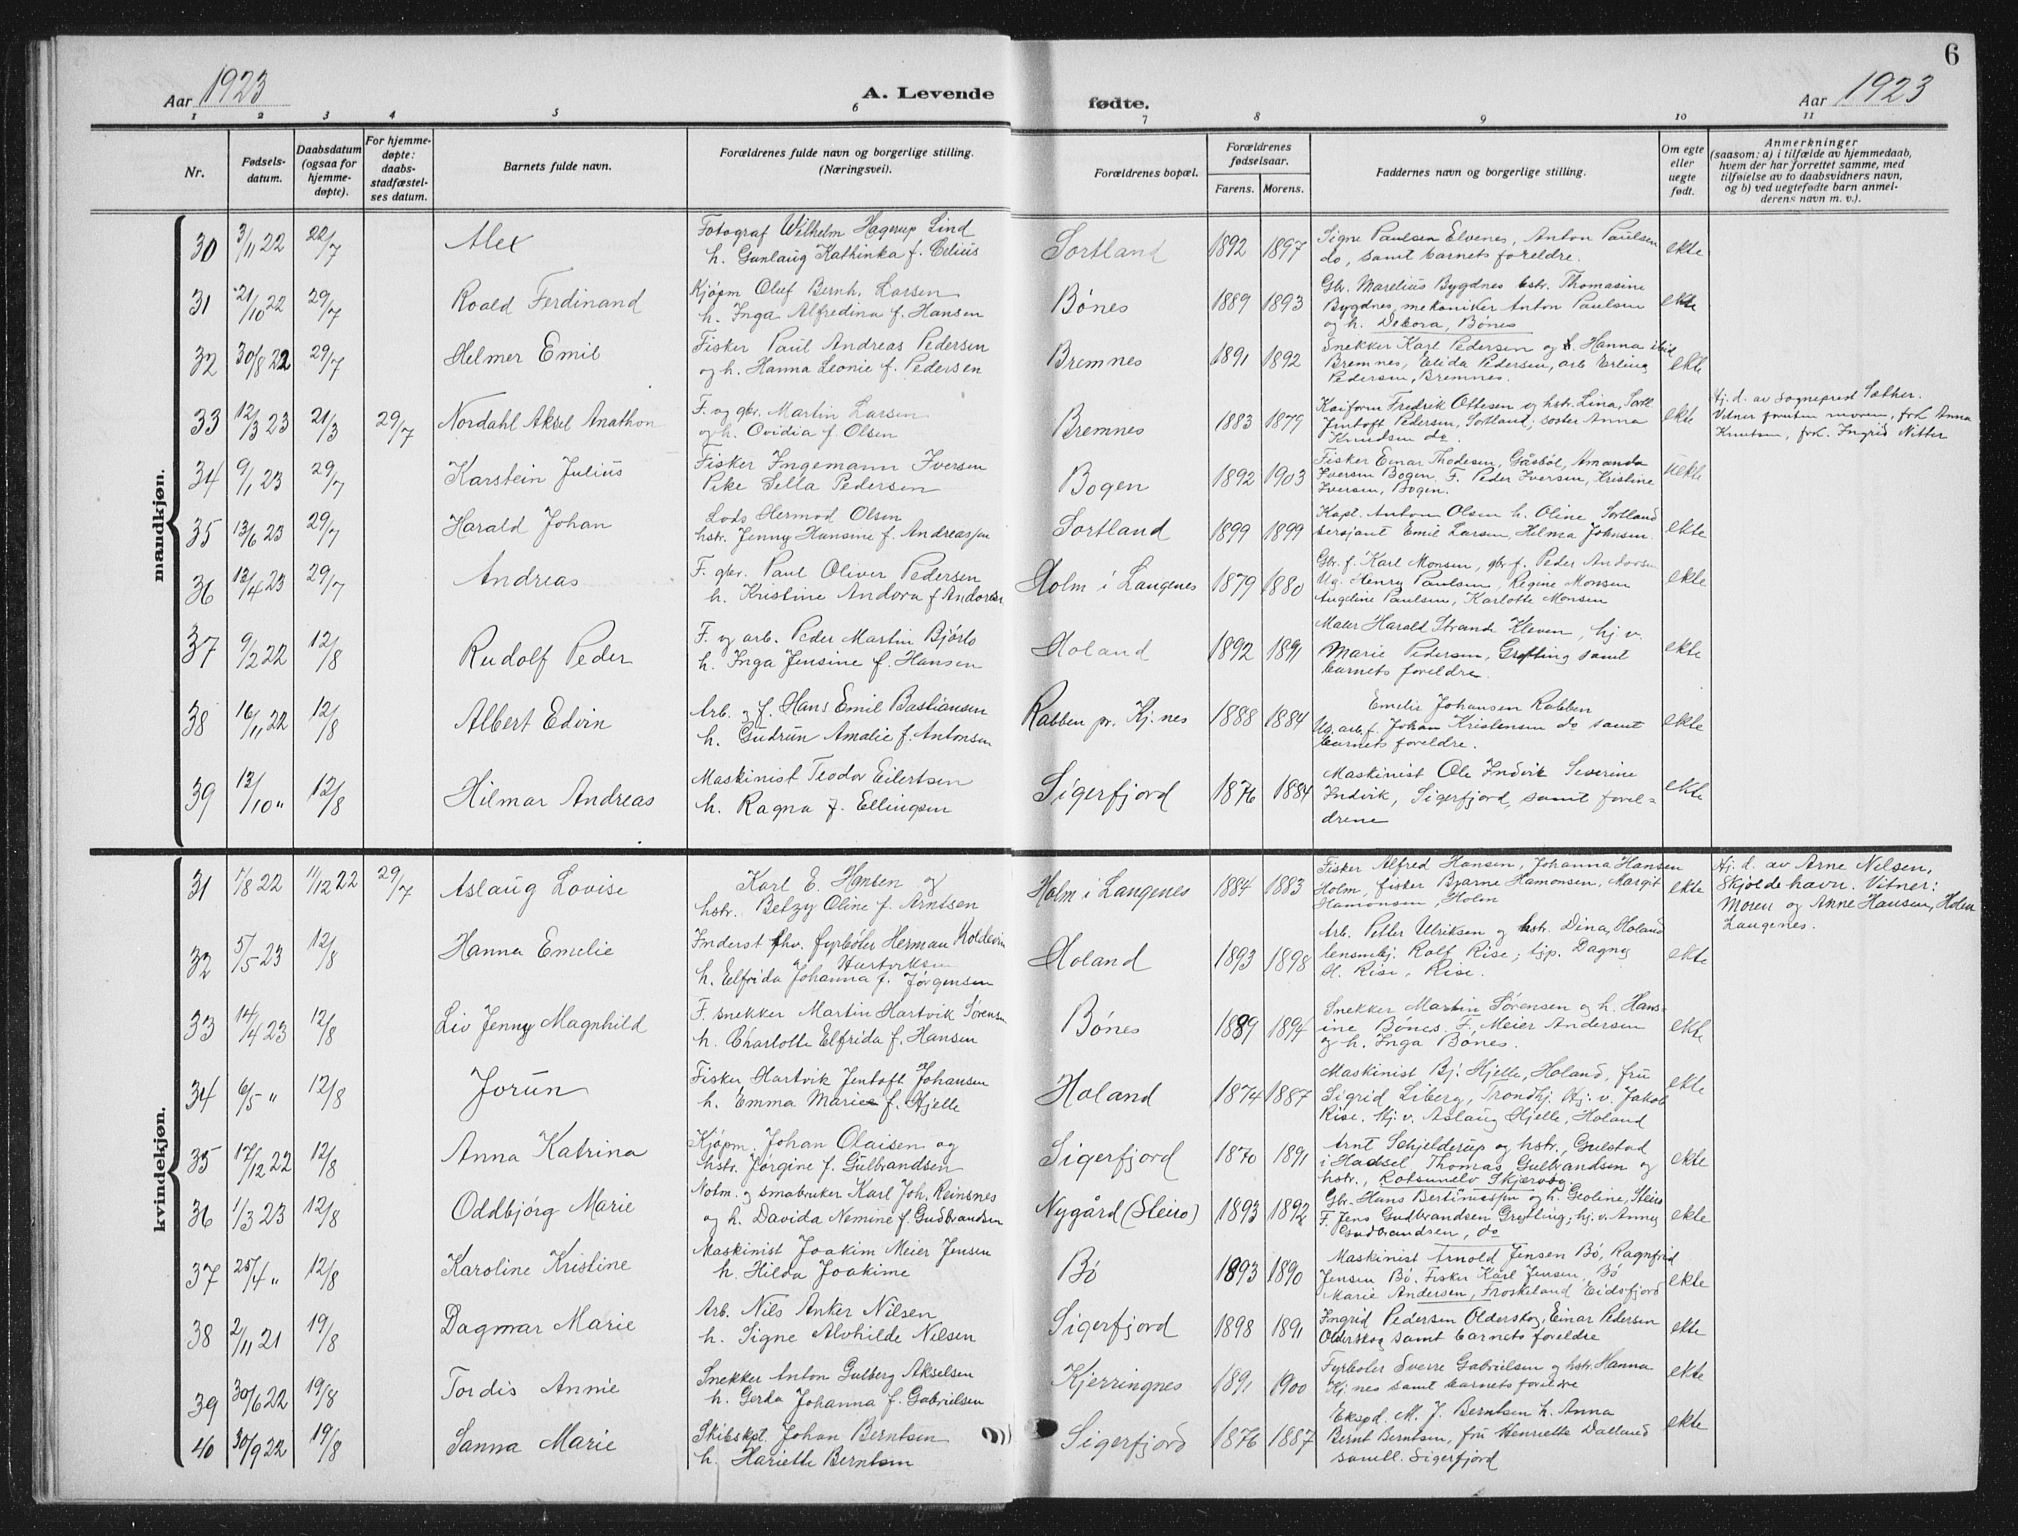 6
Aar 1923
A. Levende
fødte.
Aar 1923
1 2 3 4 5 6 7 8 9 10 11
Nr.
Fødsels-
datum.
Daabsdatum
(ogsaa for
hjemme-
døpte).
For hjemme-
døpte:
daabs-
stadfæstel-
ses datum.
Barnets fulde navn.
Forældrenes fulde navn og borgerlige stilling.
(Næringsvei).
Forældrenes bopæl.
Forældrenes
fødselsaar.
Farens. Morens.
Faddernes navn og borgerlige stilling.
Om egte
eller
uegte
født.
Anmerkninger
(saasom: a) i tilfælde av hjemmedaab,
hvem der har forrettet samme, med
tilføielse av to daabsvidners navn,
og b) ved uegtefødte barn anmel-
derens navn m. v.).
mandkjøn.
30 3/11 22 22/7 Alex
Fotograf Wilhelm Hagerup Lind
h. Gunlaug Kathinka f. Celius
Sortland 1892 1897
Signe Paulsen Elvenes, Anton Paulsen
do, samt barnets foreldre.
ekte
31 21/10 22 29/7 Roald Ferdinand
Kjøpm Oluf Bernh. Larsen
h. Inga Alfredina f. Hansen
Bønes 1889 1893
Gbr. Marelius Bygdnes hstr. Thomasine
Bygdnes, mekaniker Anton Paulsen
og h. Debora, Bønes
ekte
32 30/8 22 29/7 Helmer Emil
Fisker Paul Andreas Pedersen
og h. Hanna Leonie f. Pedersen
Bremnes 1891 1892
Snekker Karl Pedersen og h. Hanna ibid
Bremnes, Elida Pedersen, arb Erling
Pedersen, Bremnes.
ekte
33 12/3 23 21/3 29/7 Nordahl Aksel Anathon
F. og gbr. Martin Larsen
og h. Ovidia f. Olsen
Bremnes 1883 1879
Kaiform Fredrik Ottesen og hstr. Lina, Sortl
Jentoft Pedersen, Sortland; søster Anna
Knudsen do.
ekte
Hj. d. av Sogneprest Sæther.
Vitner foruten moren, frk Anna
Knutsen, frk. Ingrid Nitter
34 9/1 23 29/7 Karstein Julius
Fisker Ingemann Iversen
Pike Sella Pedersen
Bogen 1892 1903
Fisker Einar Thodesen, Gåsbøl, Amanda
Iversen Bogen. F. Peder Iversen, Kristine
Iversen, Bogen.
uekte
35 13/6 23 29/7 Harald Johan
Lods Hermod Olsen
hstr. Jenny Hansine f. Andreassen
Sortland 1899 1899
Kapt. Anton Olsen h. Oline Sortland
sersjant Emil Larsen, Helma Johnsen.
ekte
36 12/4 23 29/7 Andreas
F. gbr. Paul Oliver Pedersen
h. Kristine Andora f Andorsen
Holm i Langenes 1879 1880
Gbr. f. Karl Monsen, gbr f. Peder Andorsen
Ug. Henry Paulsen, Regine Monsen
Angeline Paulsen, Karlotte Monsen
ekte
37 9/2 22 12/8 Rudolf Peder
F. og arb. Peder Martin Bjørlo
h. Inga Jensine f. Hansen
Holand 1892 1891
Maler Harald Strand Kleven, hj v.
Marie Pedersen, Grytting samt
barnets foreldre.
ekte
38 16/11 22 12/8 Albert Edvin
Arb. og f. Hans Emil Bastiansen
h. Gudrun Amalie f. Antonsen
Rabben pr. Kj.nes 1888 1884
Emelie Johansen Rabben
Ug. arb. f. Johan Kristensen do samt
barnets foreldre.
ekte
39 12/10 " 12/8 Hilmar Andreas
Maskinist Teodor Eilertsen
h. Ragna f. Ellingsen
Sigerfjord 1876 1884
Maskinist Ole Indvik Severine
Indvik, Sigerfjord, samt forel-
drene
ekte
kvindekjøn.
31 1/8 22 11/12 22 29/7 Aslaug Lovise
Karl E. Hansen og
hstr. Betzy Oline f. Arntsen
Holm i Langenes 1884 1883
Fisker Alfred Hansen, Johanna Hansen
Holm, fisker Bjarne Hamonsen, Margit
Hamonsen, Holm
ekte
Hj. d. av Arne Nelsen,
Skjoldehavn. Vitner:
Moren og Anne Hansen, Holm
Langenes.
32 5/5 23 12/8 Hanna Emelie
Inderst fhv. fyrbøter Herman Koldevin
Hartviksen
h. Elfrida Johanna f. Jørgensen
Holand 1893 1898
Arb. Petter Ulriksen og hstr. Dina, Holand
lensmbj. Rolf Rise, hjp. Dagny
H. Rise, Rise.
ekte
33 14/4 23 12/8 Liv Jenny Magnhild
F. snekker Martin Hartvik Sørensen
h. Charlotte Elfrida f. Hansen
Bønes 1889 1894
Snekker Martin Sørensen og h. Hans-
ine Bønes. F. Meier Andersen
og h. Inga Bønes.
ekte
34 6/5 " 12/8 Jorun
Fisker Hartvik Jentoft Johansen
h. Emma Marie f. Hjelle
Holand 1874 1887
Maskinist Bj. Hjelle, Holand, fru
Sigrid Siberg, Trondhj. Hj. v. Jakob
Rise. Hj. v. Aslaug Hjelle, Holand
ekte
35 17/12 22 12/8 Anna Katrina
Kjøpm. Johan Olaisen og
hstr. Jørgine f. Gulbrandsen
Sigerfjord 1870 1891
Arnt Schjelderup og hstr., Gulstad
i Hadsel Thomas Gulbrandsen og
hstr., Rotsundelv Skjervøy
ekte
36 1/3 23 12/8 Oddbjørg Marie
Notm. og småbruker Karl Joh. Reinsnes
og h. Davida Nemine f. Gudbrandsen
Nygård (Steiro) 1893 1892
Gbr. Hans Bertinussen og h. Geoline, Steiro
F. Jens Gudbrandsen Grytting; hj. v. Anney
Gudbrandsen, do
ekte
37 25/4 " 12/8 Karoline Kristine
Maskinist Joakim Meier Jensen
h. Hilda Joakime
Bø 1893 1890
Maskinist Arnold Jensen Bø, Ragnfrid
Jensen Bø. Fisker Karl Jensen, Bø
Marie Andersen, Froskeland Eidsfjord
ekte
38 2/11 21 19/8 Dagmar Marie
Arb. Nils Anker Nilsen
h. Signe Alvhilde Nilsen
Sigerfjord 1898 1891
Ingrid Pedersen Olderskog, Einar Pedersen
Olderskog samt barnets foreldre
ekte
39 30/6 22 19/8 Tordis Annie
Snekker Anton Gulberg Akselsen
h. Gerda Johanna f. Gabrielsen
Kjerringnes 1891 1900
Fyrbøter Sverre Gabrielsen og hstr. Hanna
Kj.nes samt barnets foreldre
ekte
40 30/9 22 19/8 Sanna Marie
Skibskpt. Johan Berntsen
h. Hariette Berntsen
Sigerfjord 1876 1887
Ekspd. M. J. Berntsen h. Anna
Bernt Berntsen, fru Henriette Dalland
samtl. Sigerfjord
ekte